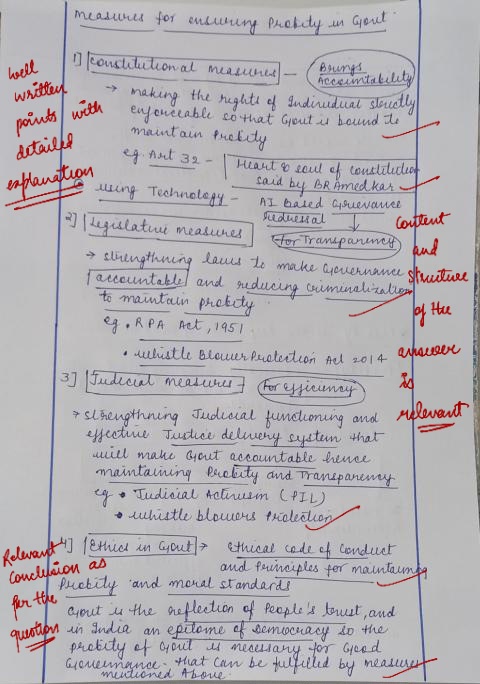 Measures for ensuring Probity in Govt
1] Constitutional measures - Brings Accountability
→ making the rights of Individual strictly
enforceable so that Govt is bound to
maintain Probity
eg. Art 32 - Heart & soul of constitution
said by BRAmedkar
• using Technology - AI Based Grievance
redressal
2] Legislative measures
for Transparency
→ strengthning laws to make Governance
accountable and reducing criminalization
to maintain probity.
eg. RPA Act, 1951
• Whistle Blower Protection Act 2014
3] Judicial Measures - for Efficiency
→ strengthning Judicial functioning and
effective Justice delivery system that
will make Govt accountable hence
maintaining Probity and Transparency
eg • Judicial Activism (PIL)
• Whistle blowers Protection
4] Ethics in Govt → Ethical code of Conduct
and Principles for maintaining
Probity and moral standards
Govt is the reflection of People's trust, and
in India an epitome of Democracy so the
probity of Govt is necessary for Good
Governance. that can be fulfilled by measures
mentioned Above.
well
written
points with
detailed
explanation
Content
and
structure
of the
answer
is
relevant
Relevant
Conclusion as
per the
question